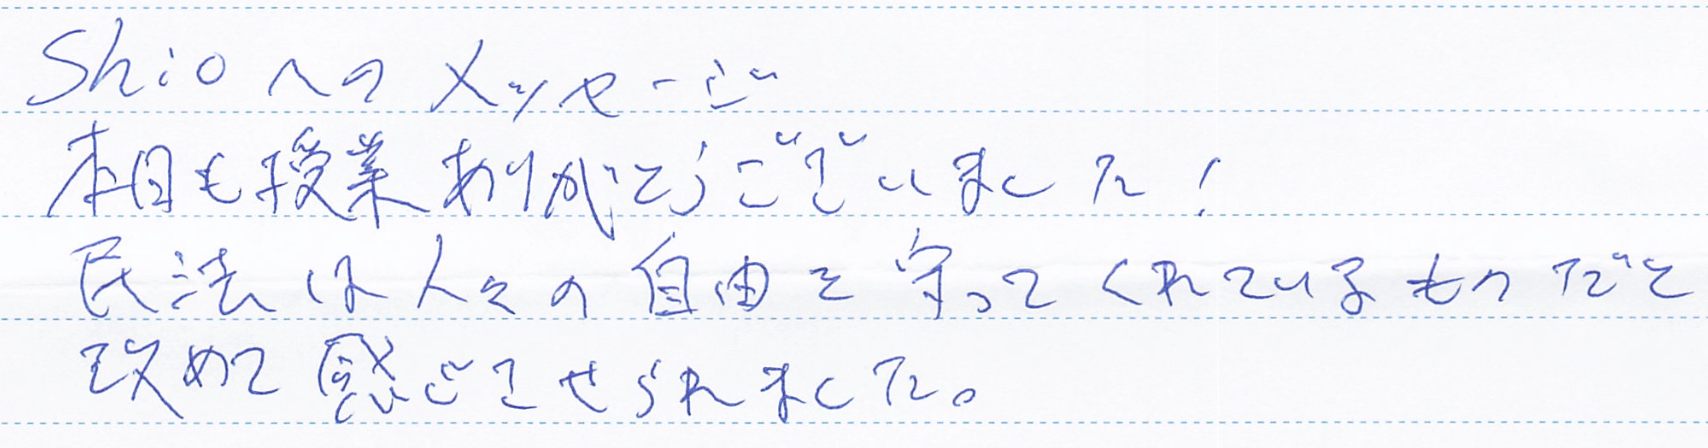 Shioへのメッセージ
本日も授業ありがとうございました!
民法は人々の自由を守ってくれているものだと
改めて感じさせられました。